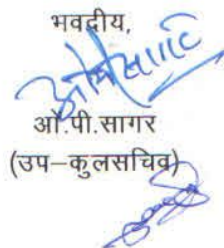 भवदीय,
ओ.पी.सागर
(उप–कुलसचिव)